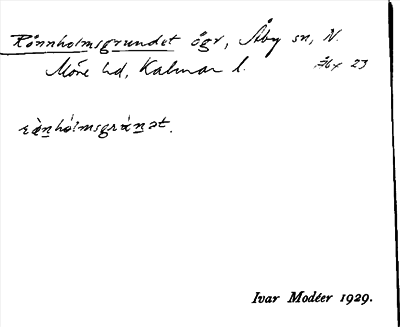 Rönnholmsgrundet ögr, Åby sn, N.
Möre hd, Kalmar l. Åby 23
rö̀nhólmsgrùnət.
Ivar Modéer 1929.